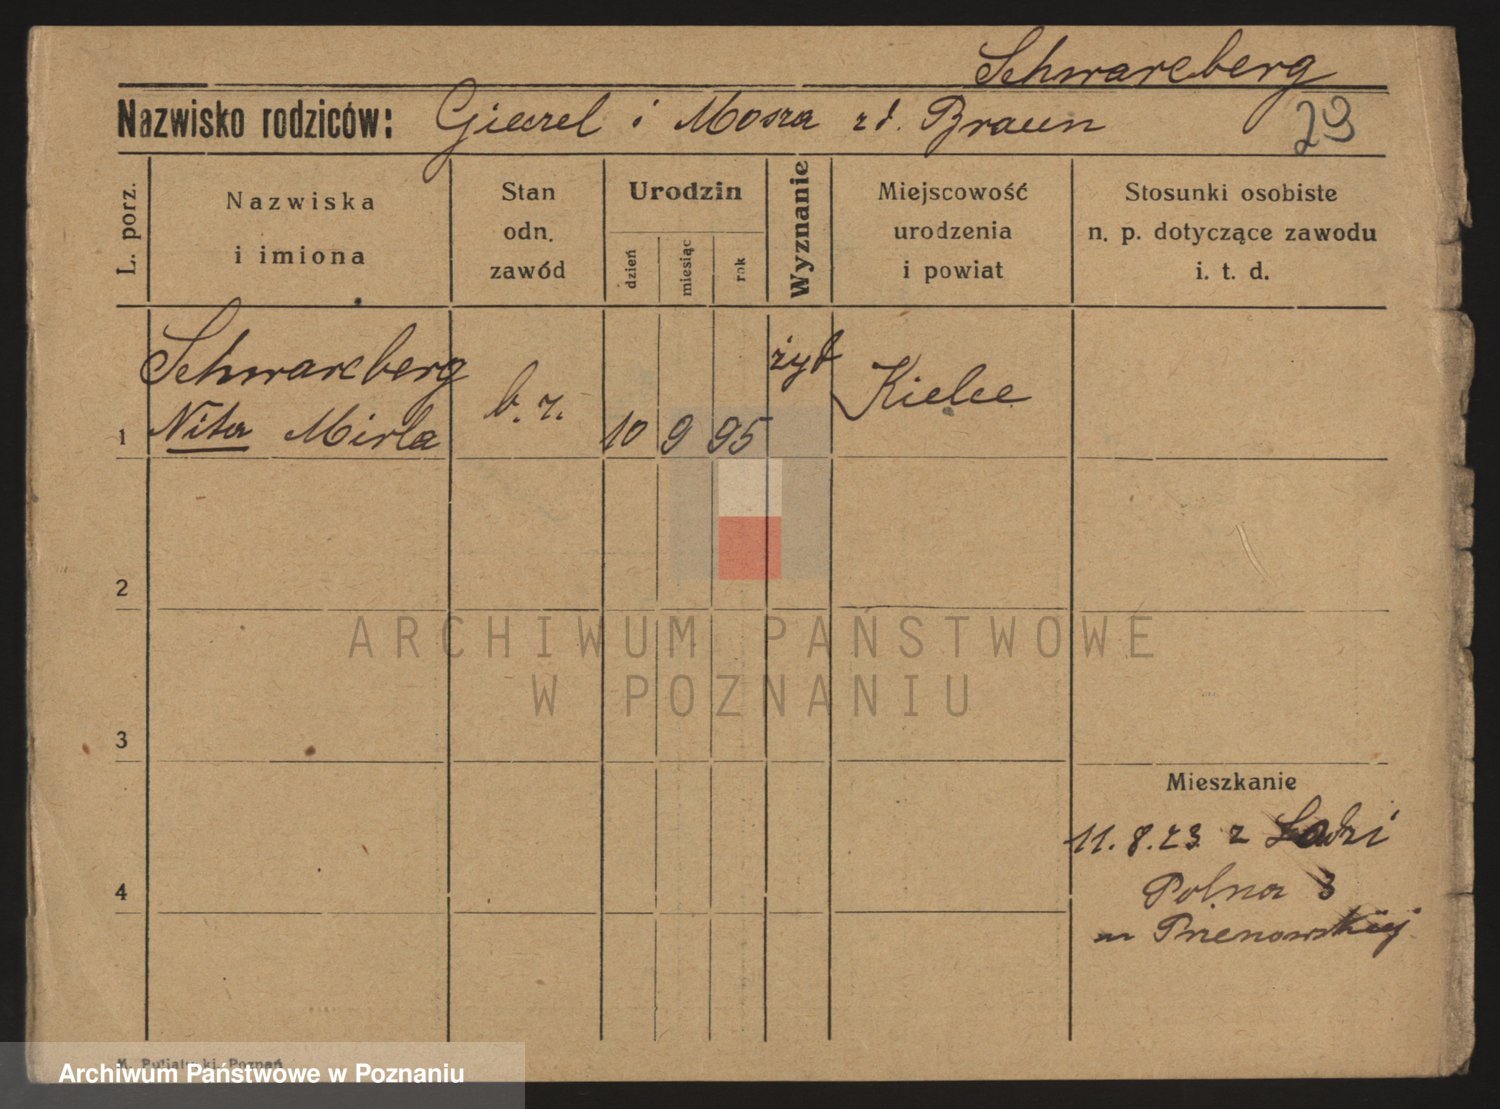 Schwarcberg
Nazwisko rodziców: Gieczel i Mosza zd. Braun 29
L. porz.
Nazwiska
i imiona
Stan
odn.
zawód
Urodzin
dzień
miesiąc
rok
Wyznanie
Miejscowość
urodzenia
i powiat
Stosunki osobiste
n. p. dotyczące zawodu
i. t. d.
Schwarcberg
1 Mirla b. z. 10 9 95 żyd Kielce
2
3
4
Mieszkanie
11.8.23 z Łodzi
Polna 3
ARCHIWUM PAŃSTWOWE
W POZNANIU
Poznań
Archiwum Państwowe w Poznaniu